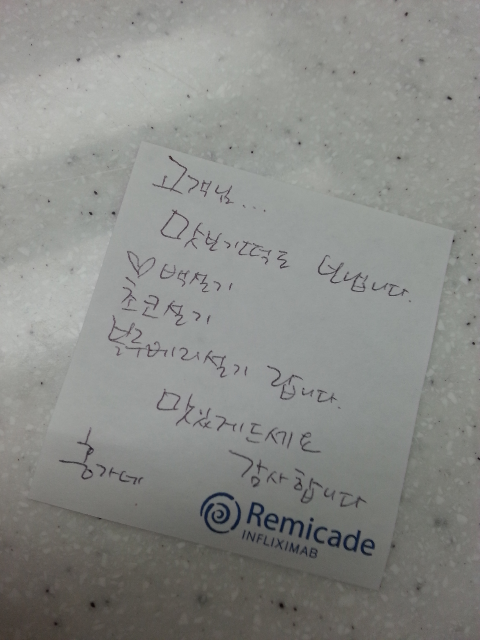 고객님...
맛보기떡도 보냅니다.
♡ 백설기
초코설기
블루베리설기 랍니다.
맛있게드세요
감사합니다
홍가네
Remicade
INFLIXIMAB